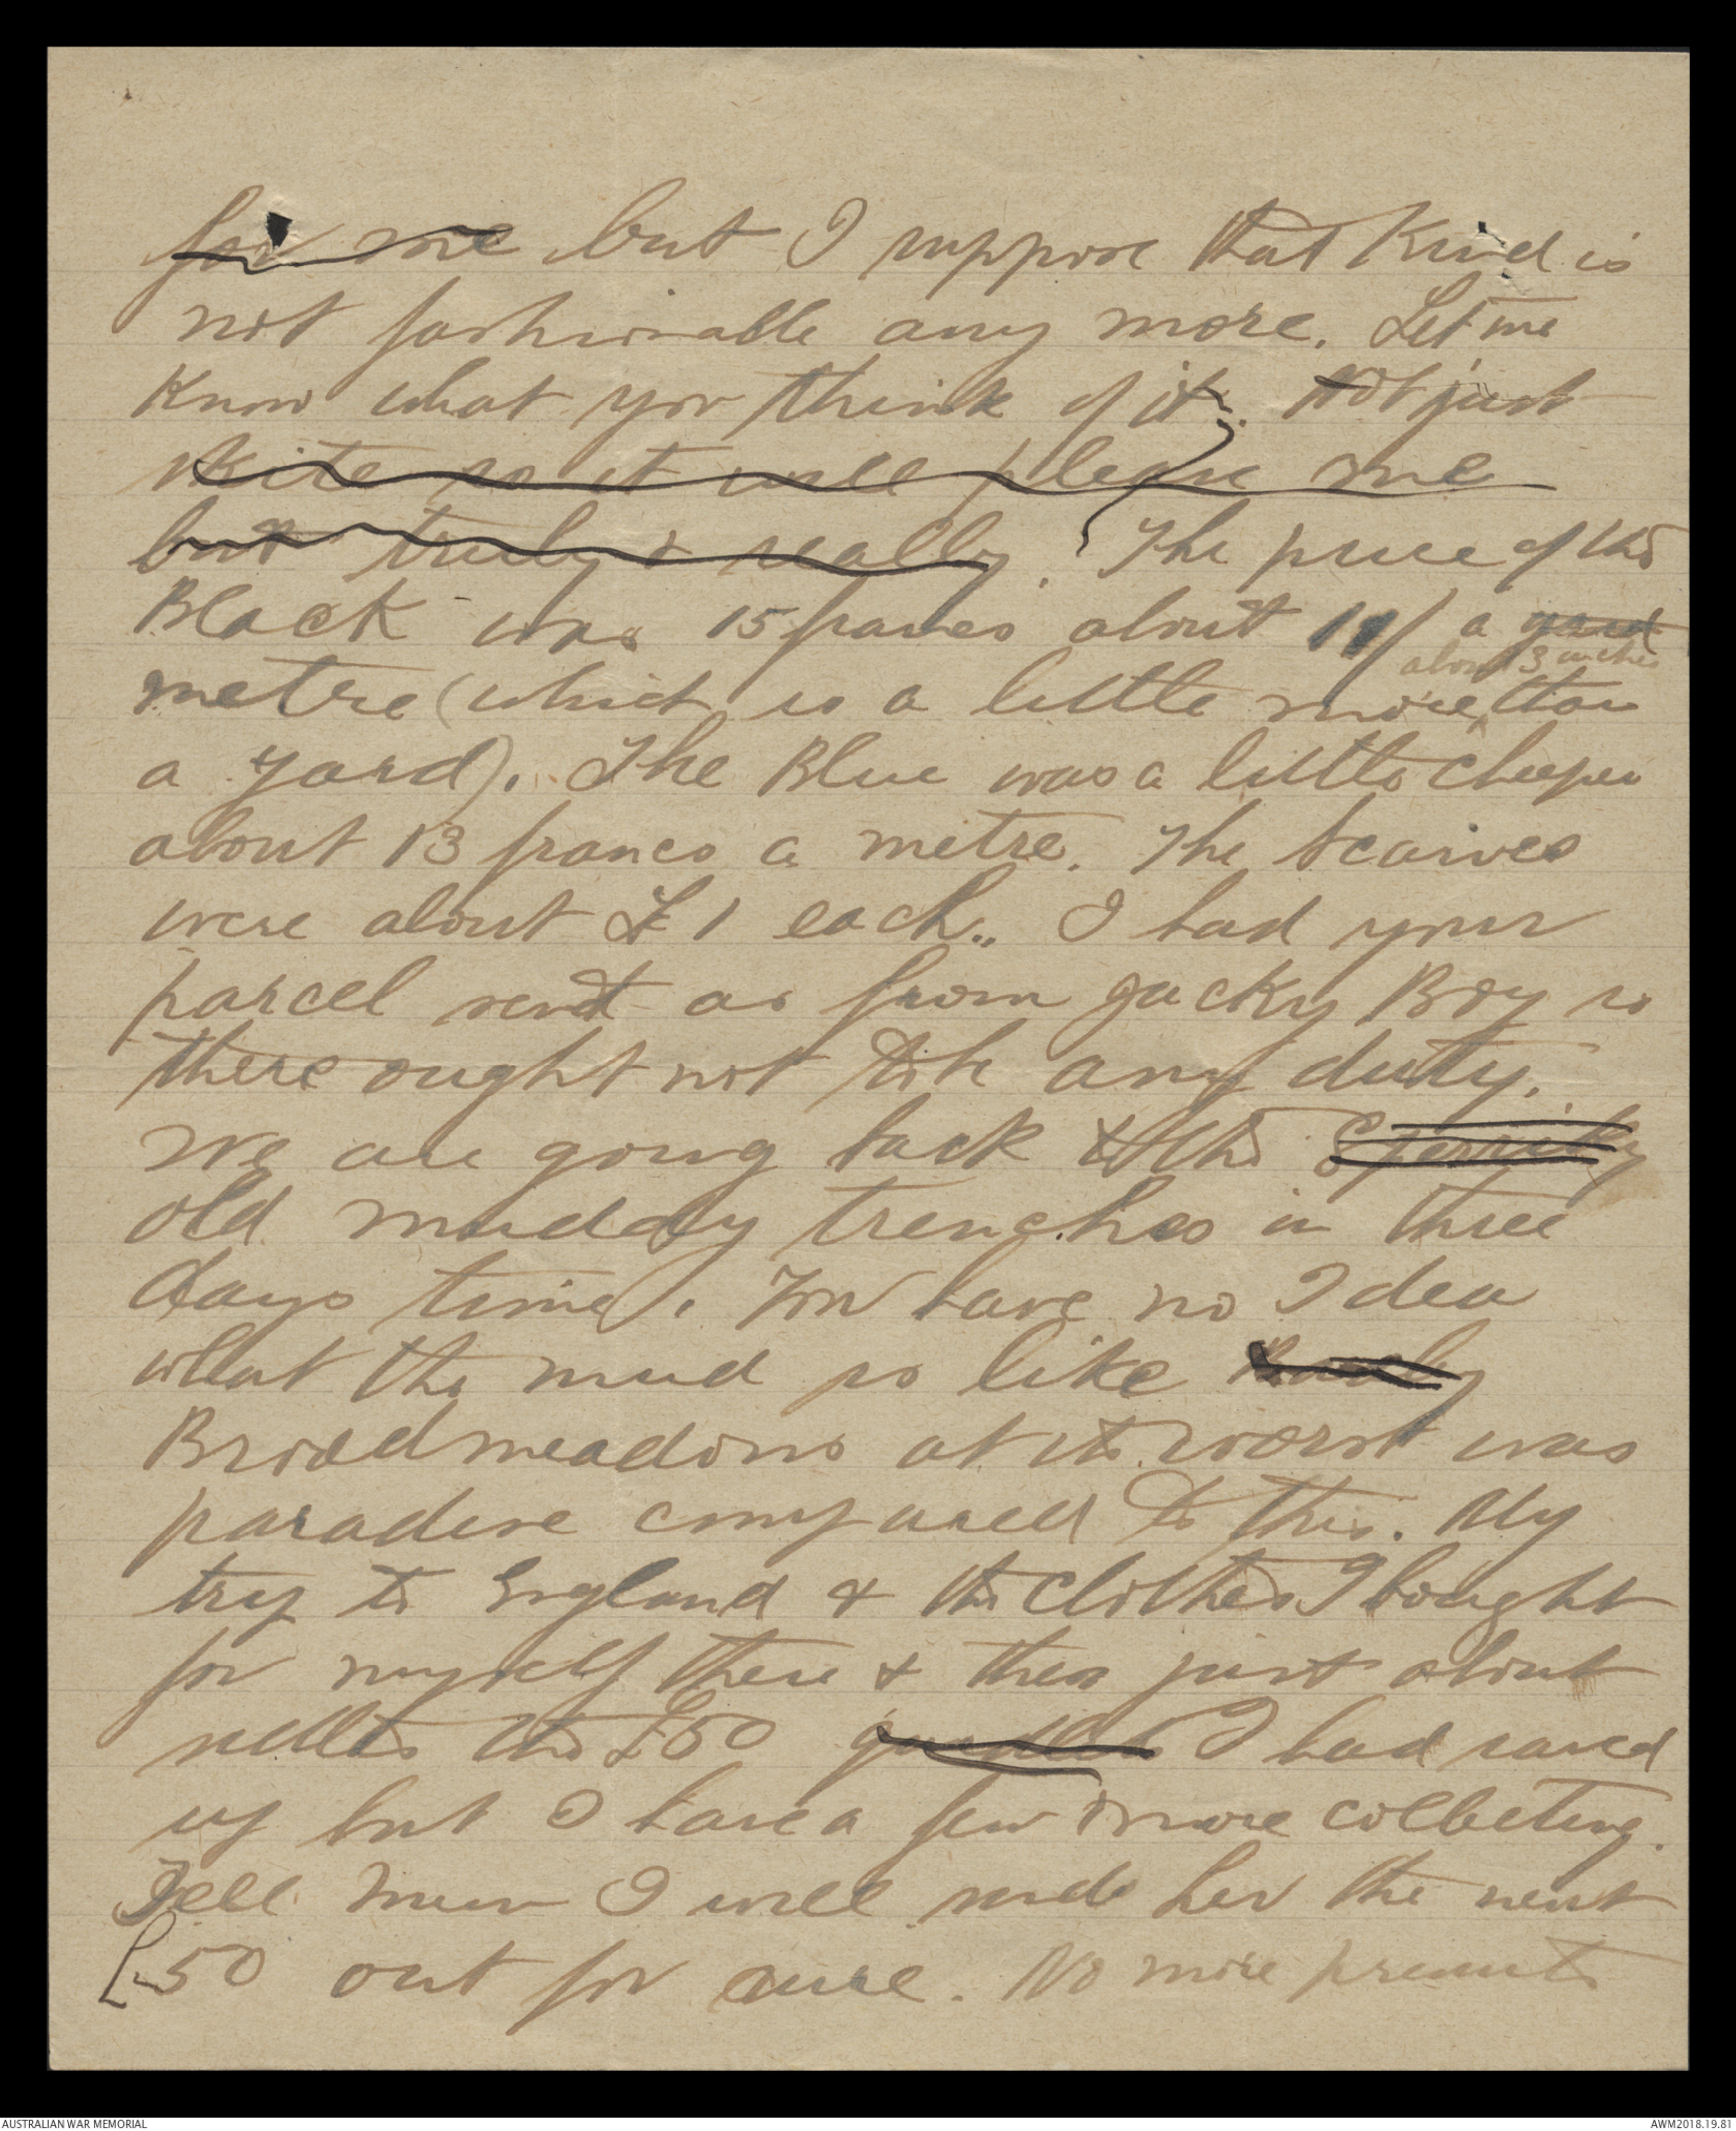 for me but I suppose that Kind is
not fashionable any more. Let me
Know what you think of it. Not just
skite so it will please me
but truly & really. The price of the
Black was 15 francs about 11/ a yard
about 3 inches
metre (which is a little more than
a yard). The Blue was a little cheaper
about 13 francs a metre. The scarves
were about £1 each.. I had your
parcel sent as from Jacky Boy so
there ought not to be any duty.
We are going back to the
old muddy trenches in three
days time. You have no Idea
what the mud is like
Broadmeadows at its worst was
paradise compared to this. My
trip to England & the clothes I bought
for myself there & then just about
settles the £50 I had saved
up but I have a few more collecting.
Tell Mum I will send her the next
£50 out for sure. No more presents
AUSTRALIAN WAR MEMORIAL
AWM2018.19.81